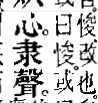 悛改也
曰悛或
心隶聲